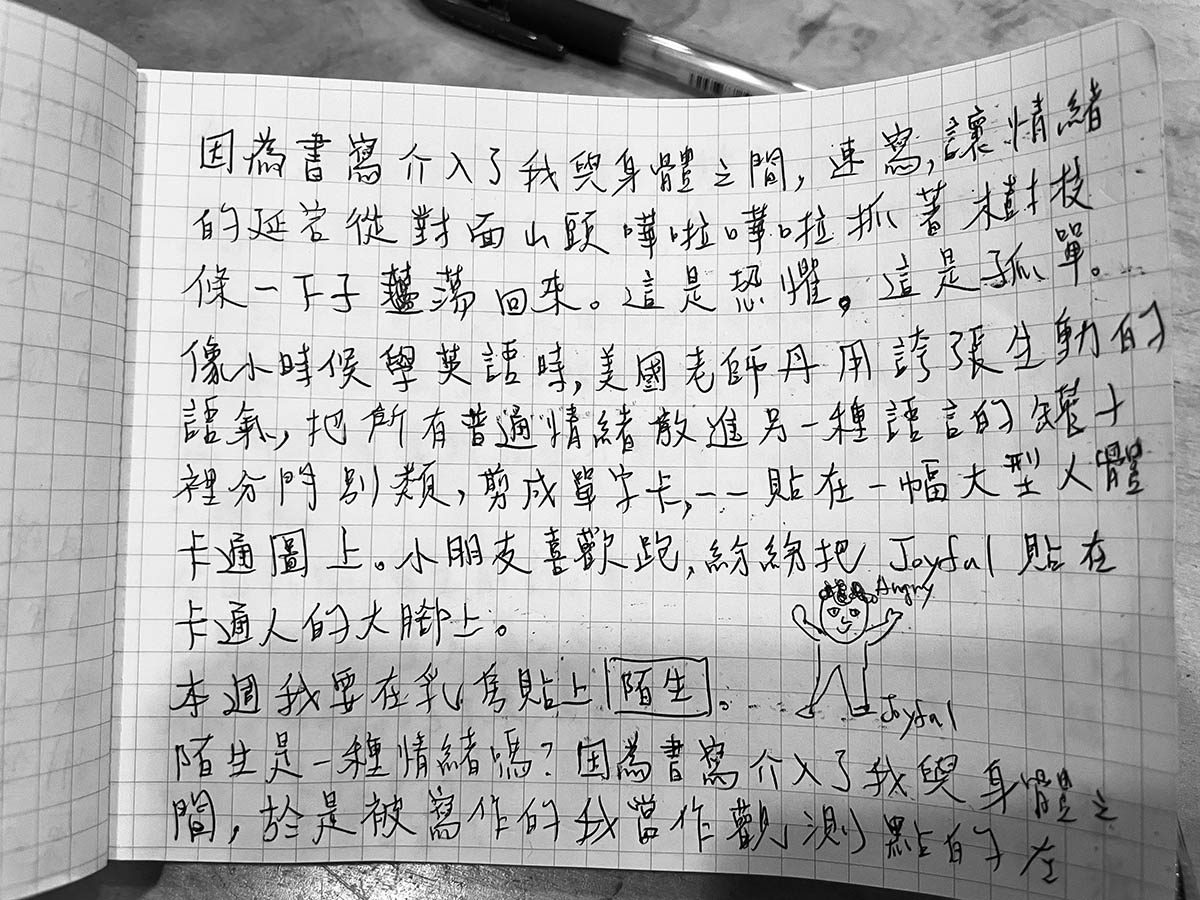 因為書寫介入了我與身體之間，連寫，讓情緒
的延宕從對面山頭嘩啦嘩啦抓著樹枝
條一下子盪回來。這是恐懼。這是孤單。
像小時候學英語時，美國老師丹用誇張生動的
語氣，把所有普通情緒放進另一種語言的罐子
裡分門別類，剪成單字卡，一一貼在一幅大型人體
卡通圖上。小朋友喜歡跑，紛紛把 Joyful 貼在
卡通人的大腳上。
Angry
本週我要在乳房貼上 陌生 。
Joyful
陌生是一種情緒嗎？因為書寫介入了我與身體之
間，於是被寫作的我當作觀測點的左